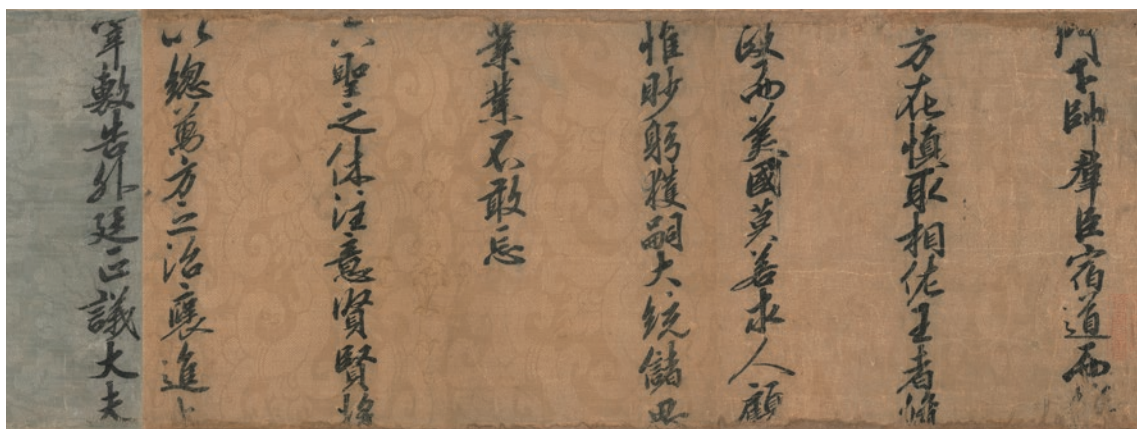 門下帥羣臣宿道而嚮
方在慎取相佐王者脩
政而美國莫若求人顧
惟眇躬獲嗣大統儲思
業業不敢忘
六聖之休注意賢賢將
以總萬方之治褒進上
宰敷告外廷正議大夫